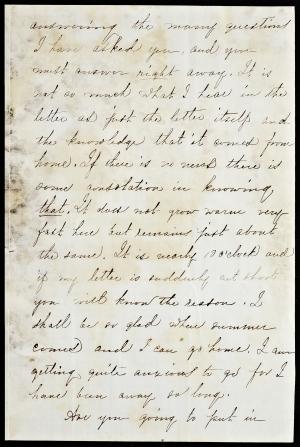 answering the many questions
I have asked you, and you
must answer right away. It is
not so much what I hear in the
letter as just the letter itself and
the knowledge that it comes from
home. If there is no news there is
some consolation in knowing
that. It does not grow warm very
fast here but remains just about
the same. It is nearly 10 o'clock and
if my letter is suddenly cut short
you will know the reason. I
shall be so glad when summer
comes and I can go home. I am
getting quite anxious to go for I
have been away so long.
Are you going to put in